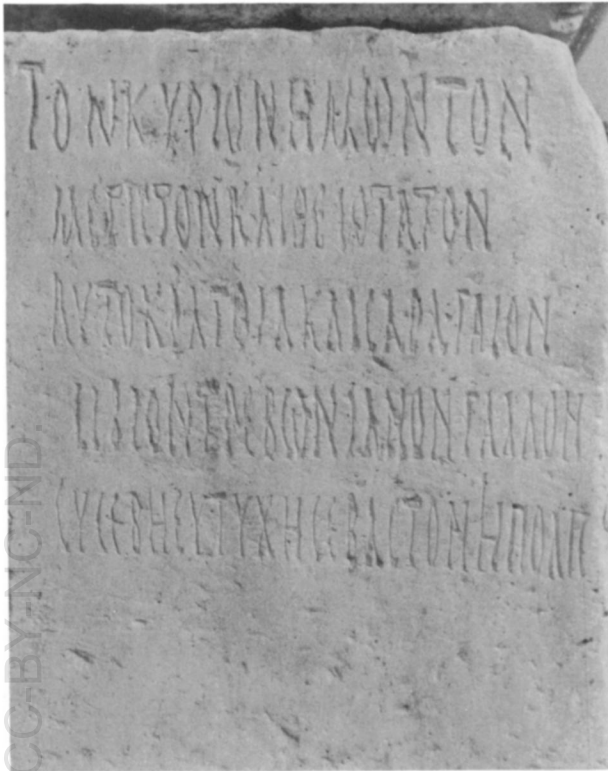 ΤΟΝΚΥΡΙΟΝΗΜΩΝΤΟΝ
ΜΕΓΙΣΤΟΝΚΑΙΘΕΙΟΤΑΤΟΝ
ΑΥΤΟΚΡΑΤΟΡΑΚΑΙΣΑΡΑΓΑΙΟΝ
ΟΥΙΒΙΟΝΤΡΕΒΩΝΙΑΝΟΝΓΑΛΛΟΝ
ΕΥΣΕΒΗΕΥΤΥΧΗΣΕΒΑΣΤΟΝΗΠΟΛΙΣ
CC-BY-NC-ND.